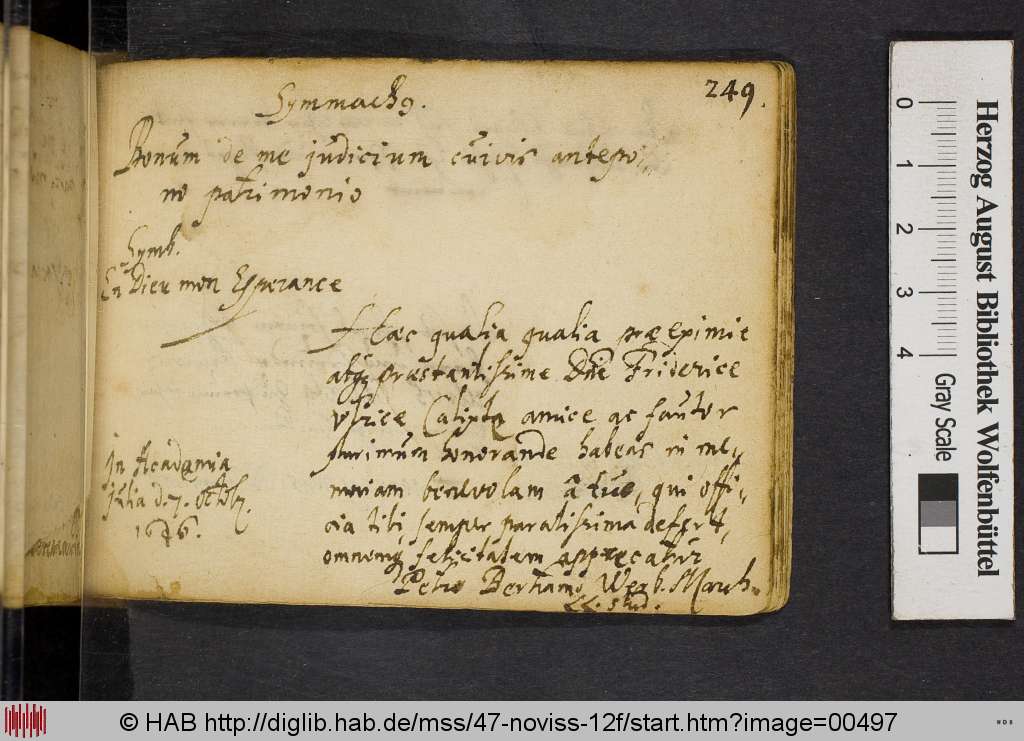 249.
Symmach9.
Bonum de me judicium cuivis antepo,,
no patrimonio
Symb.
En Dieu mon Esperance
Haec qualia qualia prae eximie
atq praestantissime Dne Friderice
Vlrice Calixte amice ac fautor
plurimum honorande habeas in me,,
moriam benevolam a tuo, qui offi,,
cia tibi semper paratissima defert,
omnemq felicitatem apprecatur
Petrus
LL. stud.
In Academia
Julia d. 7. Octob.
16 6.
0 1 2 3 4
Herzog August Bibliothek Wolfenbüttel
Gray Scale
© HAB http://diglib.hab.de/mss/47-noviss-12f/start.htm?image=00497